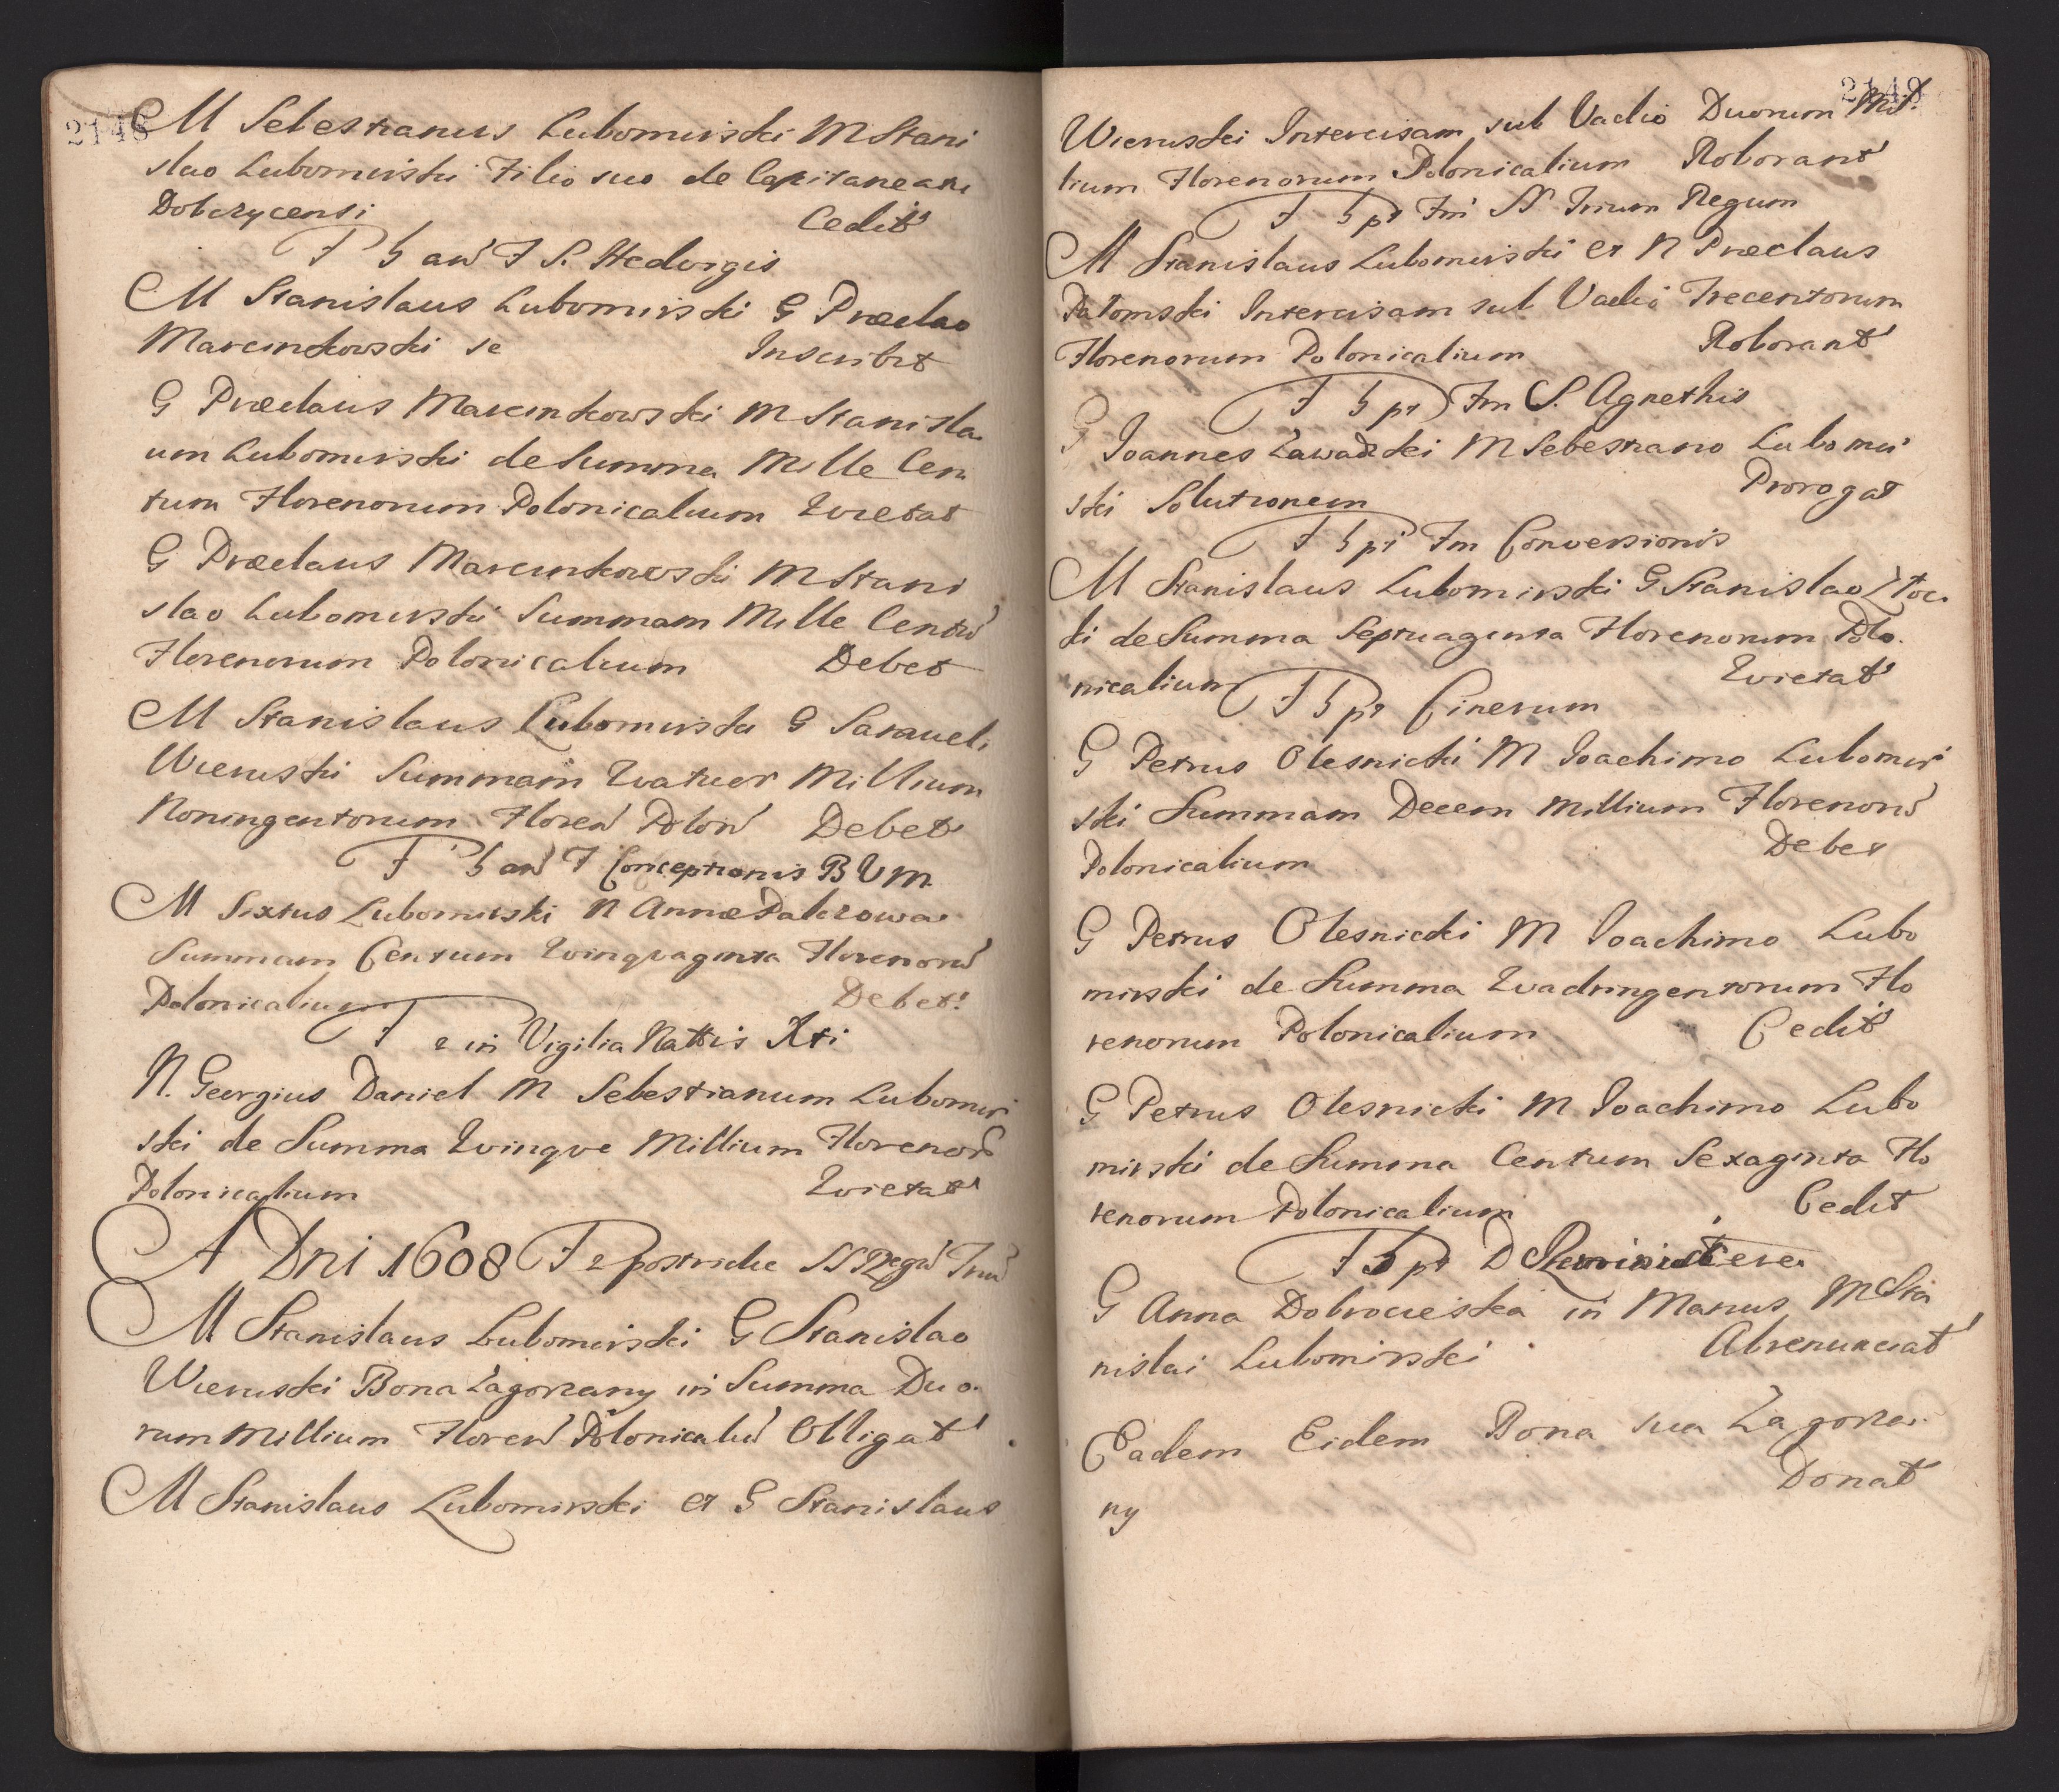 2148
M Sebestianus Lubomirski M Stani
slao Lubomirski Filio suo de Capitaneatu
Dobczycensi Cedit
F 5 an F S. Hedvigis
M Stanislaus Lubomirski G Præclao
Marcinkowski se Inscribit
G Præclaus Marcinkowski M Stanisla
um Lubomirski de Summa Mille Cen
tum Florenorum Polonicalium Qvietat
G Præclaus Marcinkowski M Stani
slao Lubomirski Summam Mille Centu
Florenorum Polonicalium Debet
M Stanislaus Lubomirski G Samueli
Wieruski Summam Qvatuor Millium
Noningentorum Floren Polon Debet
F 5 an F Conceptionis B V M
M Sixtus Lubomirski N Annæ Palczowa
Summam Centum Qvinqvaginta Florenoru
Polonicalium Debet
F 2 in Vigilia Nattis Xti
N. Georgius Daniel M Sebestianum Lubomir
ski de Summa Qvinqve Millium Floreno
Polonicalium Qvietat
A Dni 1608 F 2 postridie SS Regu Triu
M Stanislaus Lubomirski G Stanislao
Wieruski Bona Zagorzany in Summa Duo
rum Millium Floren Polonicaliu Obligat
M Stanislaus Lubomirski et G Stanislaus
2149
Wieruski Intercisam sub Vadio Duorum Mil
lium Florenorum Polonicalium Roborant
F 5 pt Fm SS Trium Regum
M Stanislaus Lubomirski et N Præclaus
Patomski Intercisam sub Vadio Trecentorum
Florenorum Polonicalium Roborant
F 5 pt Fm S. Agnethis
G Joannes Zawadzki M Sebestiano Lubomir
ski Solutionem Prorogat
F 5 pt Fm Conversionis
M Stanislaus Lubomirski G Stanislao Ztoc
ki de Summa Septuaginta Florenorum Polo
nicalium Qvietat
F 5 pt Cinerum
G Petrus Olesnicki M Joachimo Lubomir
ski Summam Decem Millium Florenoru
Polonicalium Debet
G Petrus Olesnicki M Joachimo Lubo
mirski de Summa Qvadringentorum Flo
renorum Polonicalium Cedit
G Petrus Olesnicki M Joachimo Lubo
mirski de Summa Centum Sexaginta Flo
renorum Polonicalium Cedit
F 5 pt D Reminiscere
G Anna Dobrocieska in Manus M Sta
nislai Lubomirski Abrenunciat
Eadem Eidem Bona sua Zagorza
ny Donat